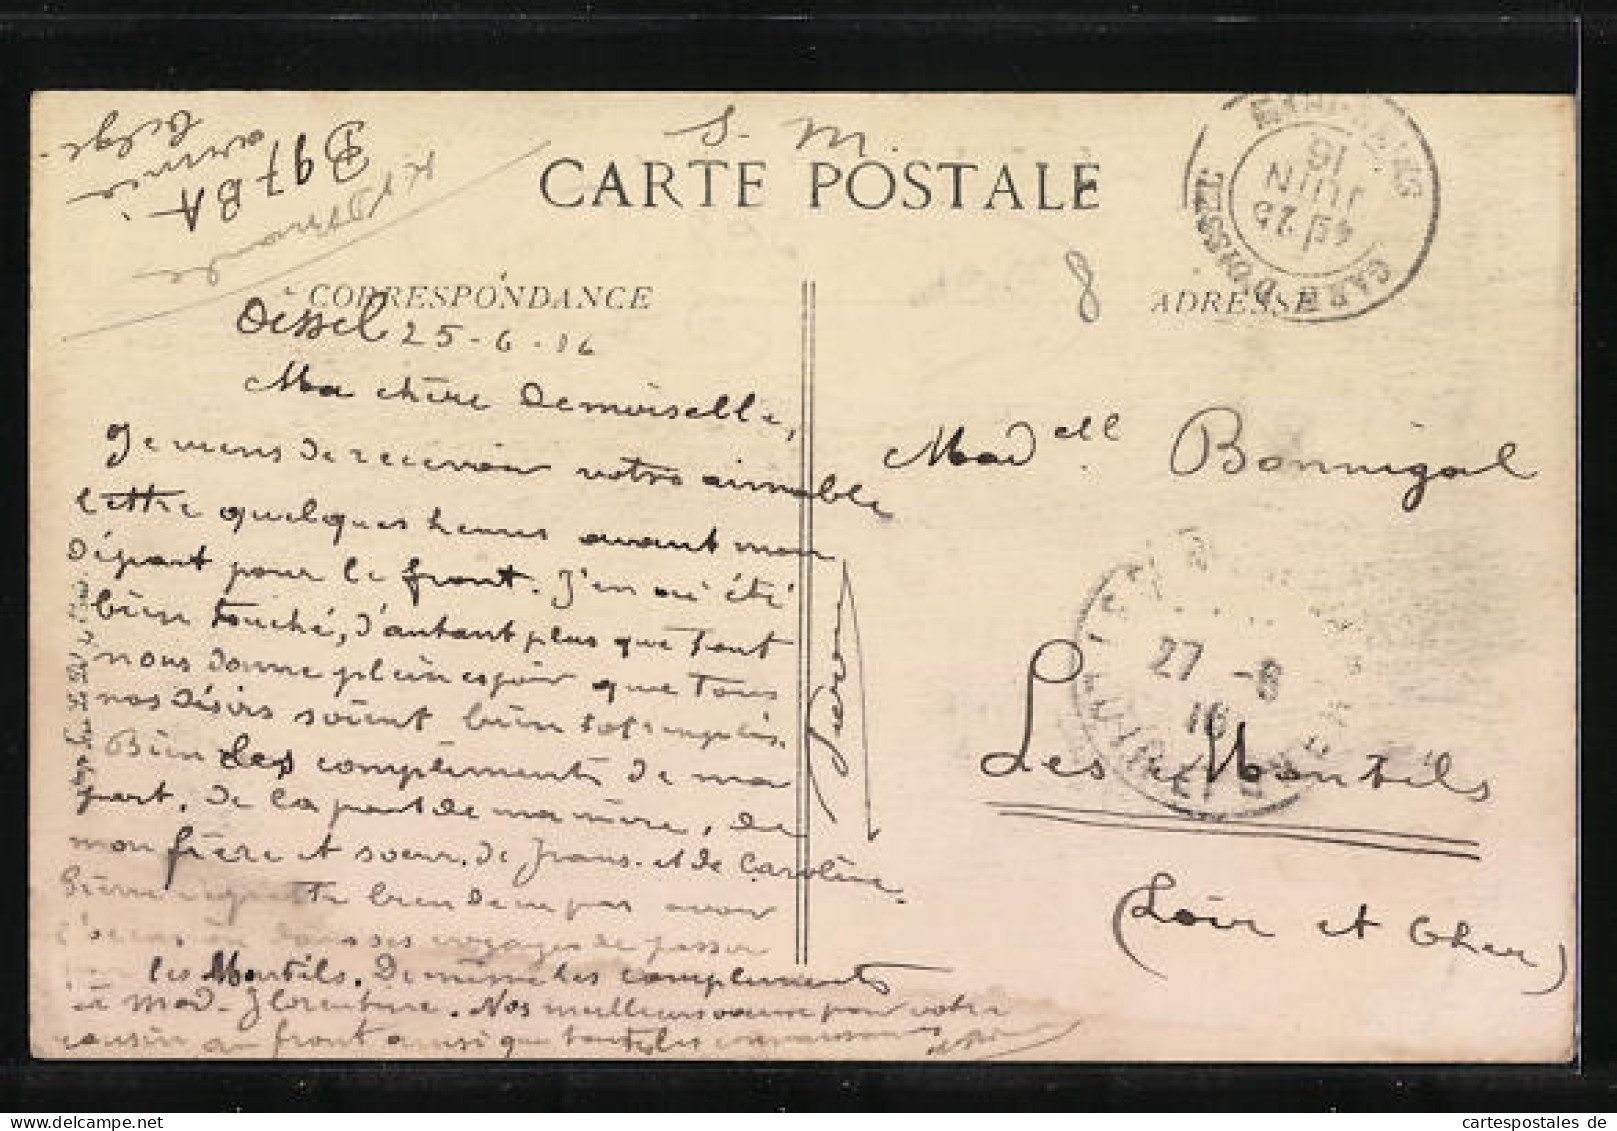 S. M.
CARTE POSTALE
D 97 BA
armée
belge
CORRESPONDANCE
ADRESSE
8
GARE D'OISSEL
25
JUIN
16
Oissel 25-6-16
Ma chère Demoiselle,
Je viens de recevoir votre aimable
lettre quelques heures avant mon
départ pour le front. J'en ai été
bien touché, d'autant plus que tout
nous donne plein espoir que tous
nos désirs soient bien
Bien des compliments de ma
part, de la part de ma mère, de
mon frère et soeur, de Frans. et de Caroline.
bien de ne pas avoir
l'occasion dans ses voyages de passer
les Montils. De même les compliments
à Mad. Florentine. Nos meilleurs pour votre
cousin au front ainsi que toutes les
Madell. Bonnigal
Les Montils
(Loir et Cher)
27 -6
16
cartespostales de